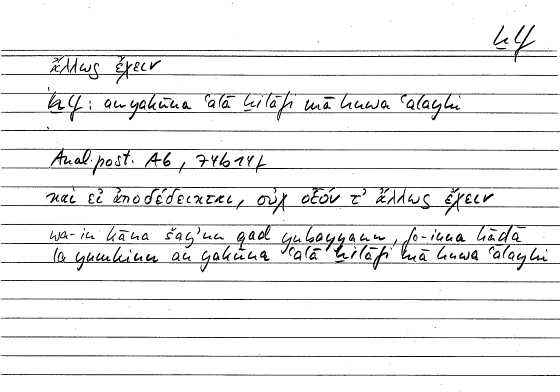 ẖlf
ἄλλως ἔχειν
ẖlf : an yakūna ʿalā ẖilāfi mā huwa ʿalayhi
Anal. post. A6, 74b14f
καὶ εἰ ἀποδέδεικται, οὐχ οἷόν τ' ἄλλως ἔχειν
wa-in kāna šayʾun qad yubayyanu, fa-inna hādā
la yumkinu an yakūna ʿalā ẖilāfi mā huwa ʿalayhi